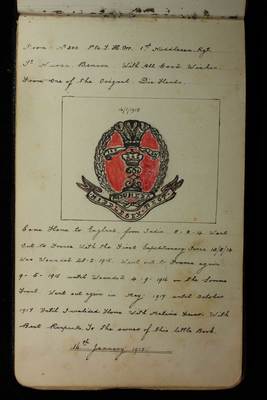 From No 200 Pte J. H. 1st Middlesex Rgt.
To Nurse Benson With All Good Wishes
From one of the Original Die Hards.
16/1/1918
MIDDLESEX REGT
Came Home to England from India Went
out to France With the First Expeditionary Force 10/8/14
Was Wounded 28-2-1915. Went out to France again
9-5-1915 until Wounded 4-9-1916 on the Somme
Front Went out again in May 1917 until October
1917 Until Invalided Home With Malaria Fever. With
Best Respects To the owner of this little Book.
16th January 1918.